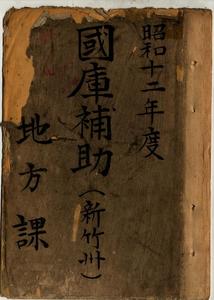 昭和十二年度
國庫補助(新竹州)
地方課